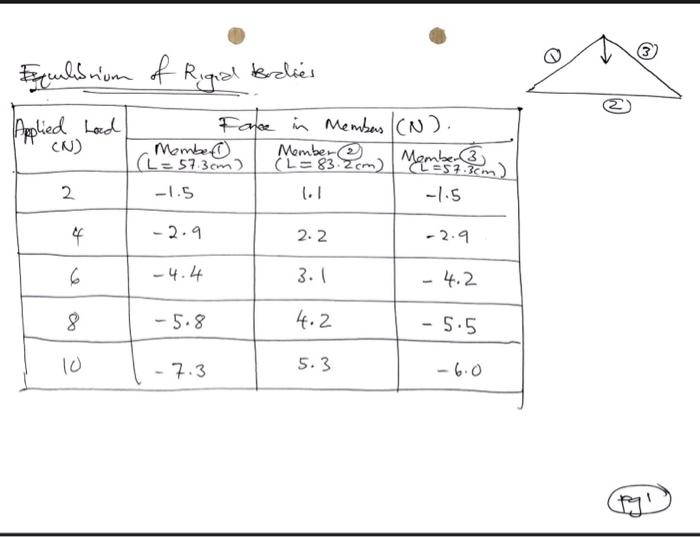 Equilibrium of Rigid Bodies
① ③
②
Applied Load (N) Force in Members (N).
Member① (L=57.3cm) Member② (L=83.2cm) Member③ (L=57.3cm)
2 -1.5 1.1 -1.5
4 -2.9 2.2 -2.9
6 -4.4 3.1 -4.2
8 -5.8 4.2 -5.5
10 -7.3 5.3 -6.0
pg1